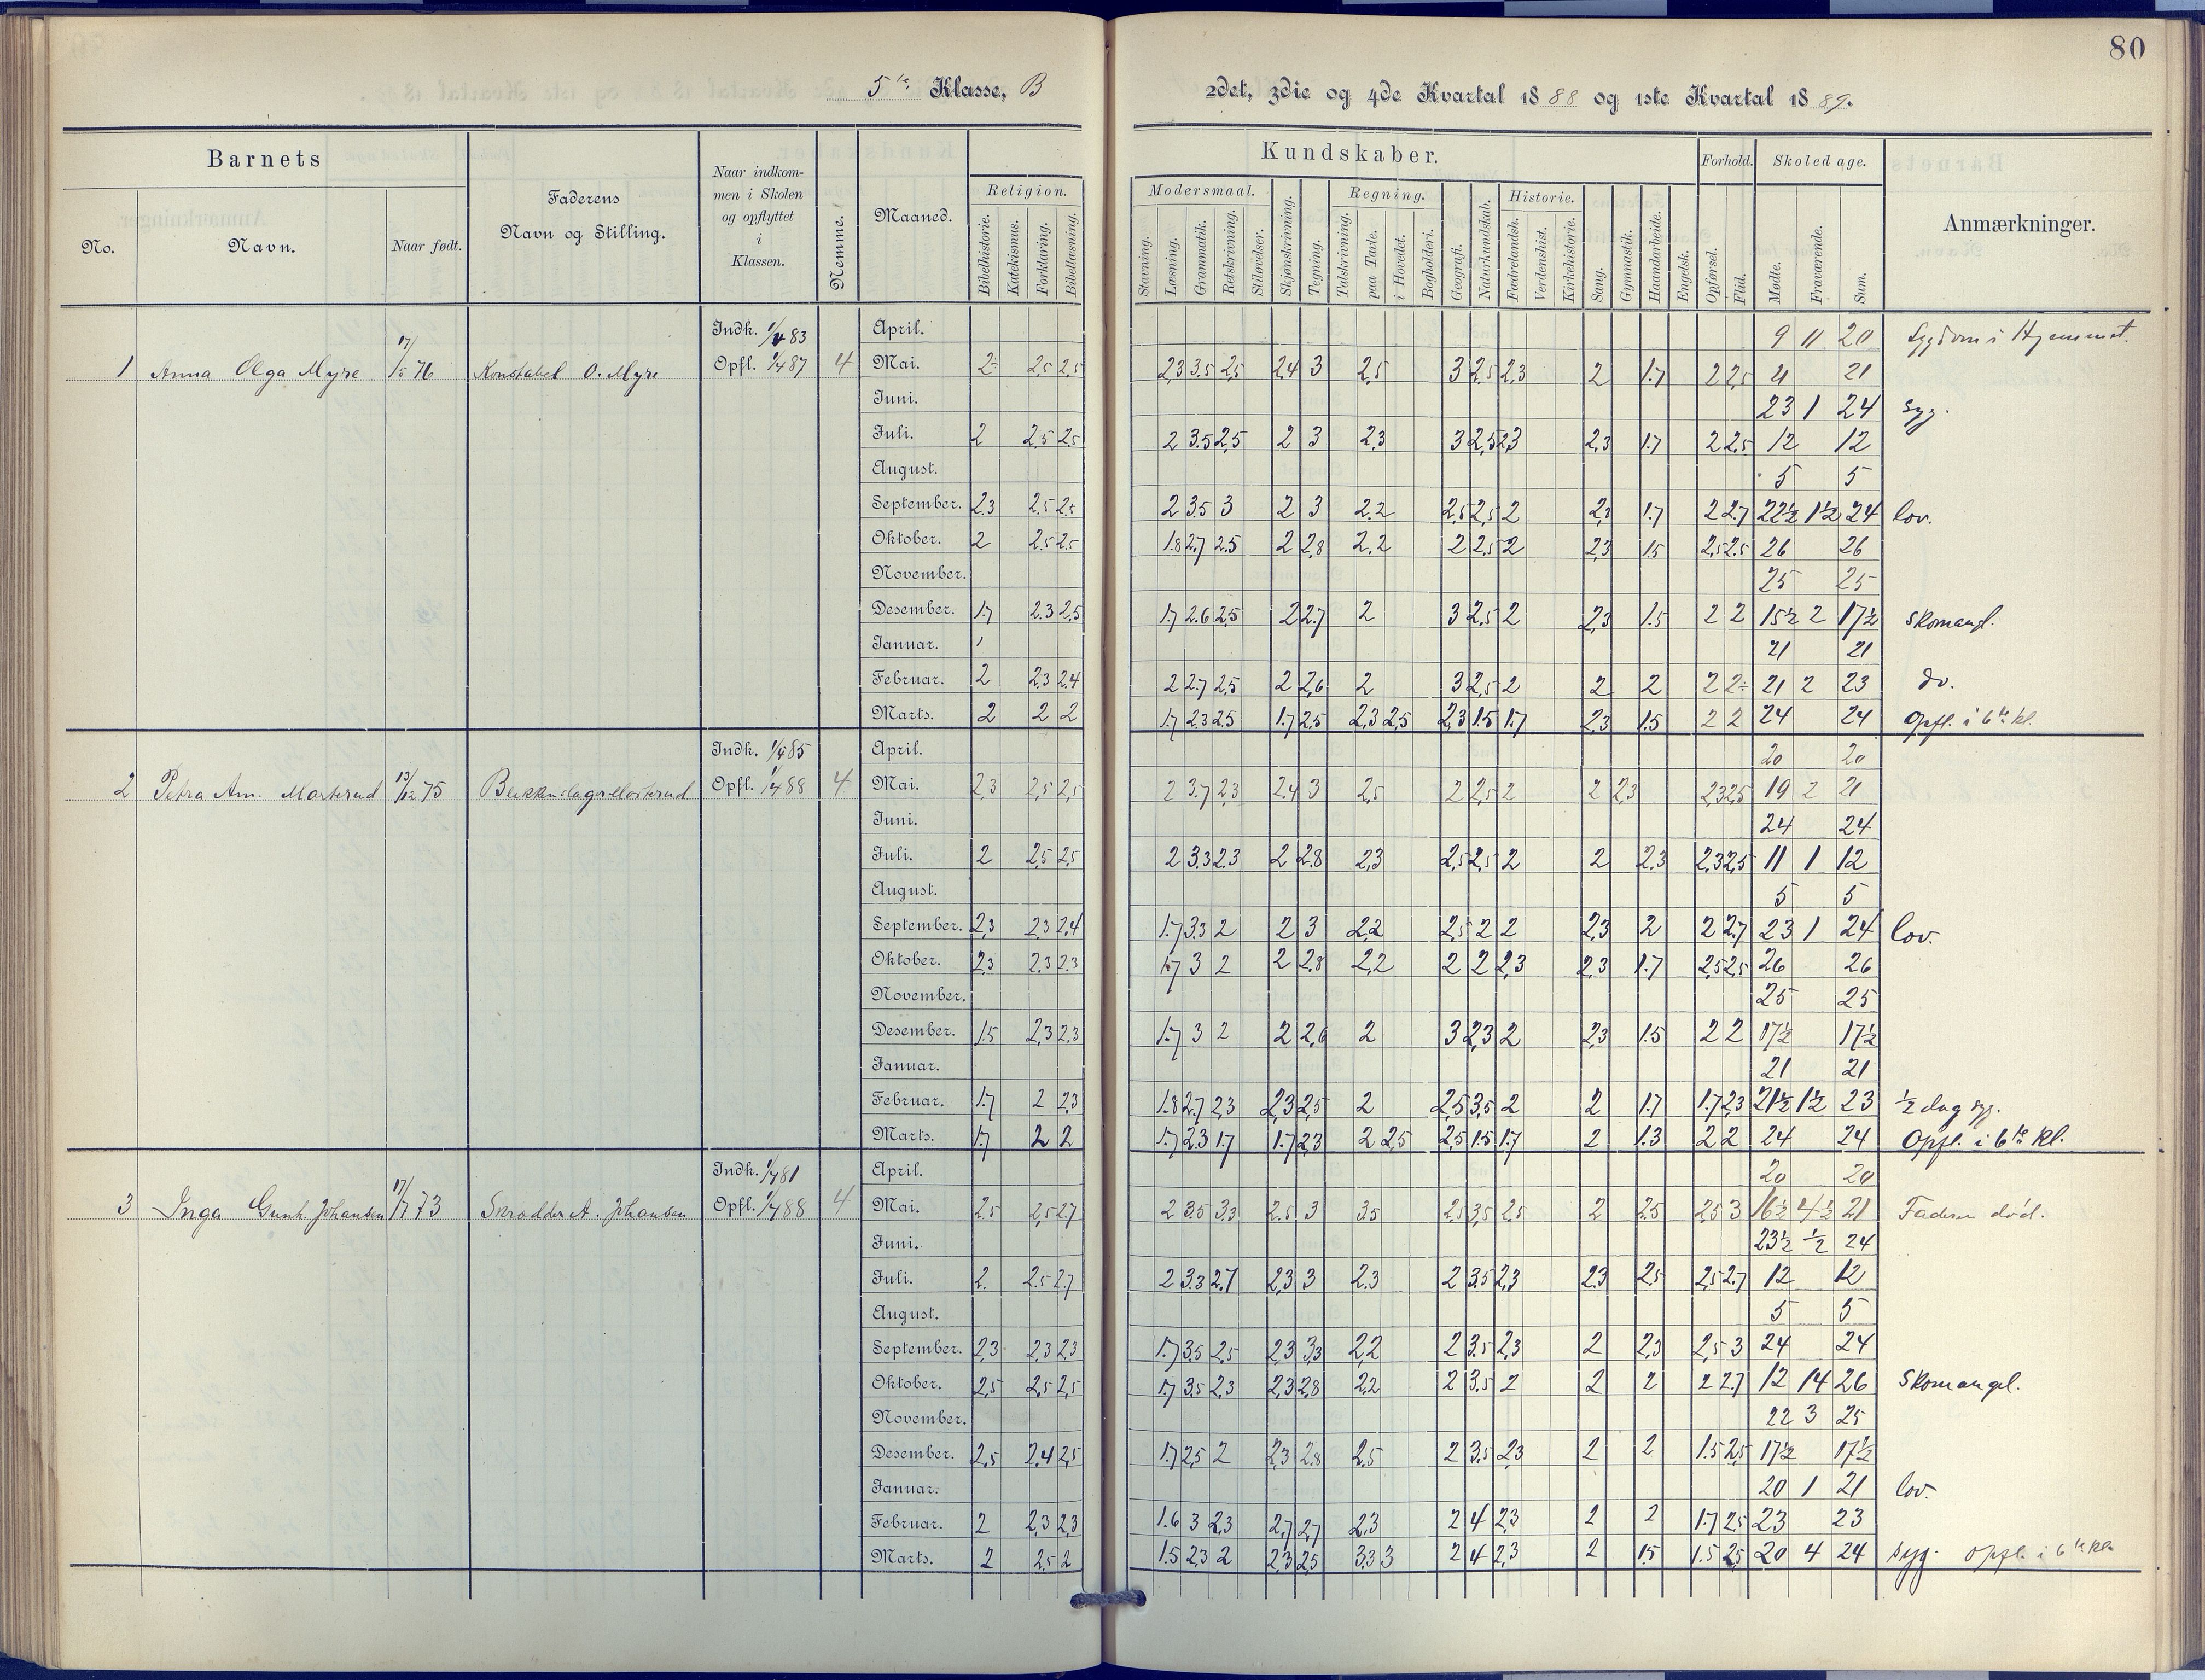 80
5te Klasse, B
2det, 3die og 4de Kvartal 1888 og 1ste Kvartal 1889.
Barnets
No.
Navn.
Naar født.
Faderens
Navn og Stilling.
Naar indkom-
men i Skolen
og opflyttet
i
Klassen.
Nemme.
Maaned.
Kundskaber.
Religion.
Bibelhistorie.
Katekismus.
Forklaring.
Bibellæsning.
Modersmaal.
Stavning.
Læsning.
Grammatik.
Retskrivning.
Stiløvelser.
Skjønskrivning.
Tegning.
Regning.
Talskrivning.
paa Tavle.
i Hovedet.
Bogholderi.
Geografi.
Naturkundskab.
Historie.
Fædrelandsh.
Verdenshist.
Kirkehistorie.
Sang.
Gymnastik.
Haandarbeide.
Engelsk.
Forhold.
Opførsel.
Flid.
Skoledage.
Mødte.
Fraværende.
Sum.
Anmærkninger.
1 Anna Olga Myre 17/5 76 Konstabel O. Myre
Indk. 1/4 83
Opfl. 1/4 87 4
April. 9 11 20 Sygdom i Hjemmet.
Mai. 2 2,5 2,5 2,3 3.5 2,5 2,4 3 2,5 3 2,5 2,3 2 1.7 2 2,5 21 21
Juni. 23 1 24 Syg.
Juli. 2 2,5 2,5 2 3.5 2,5 2 3 2,3 3 2,5 2,3 2,3 1.7 2 2,5 12 12
August. 5 5
September. 2.3 2.5 2,5 2 3.5 3 2 3 2.2 2,5 2,5 2 2,3 1.7 2 2.7 22½ 1½ 24 lov.
Oktober. 2 2.5 2.5 1.8 2.7 2.5 2 2,8 2,2 2 2,5 2 2,3 1.5 2,5 2.5 26 26
November. 25 25
Desember. 1.7 2.3 2.5 1.7 2.6 2.5 2 2.7 2 3 2,5 2 2,3 1.5 2 2 15½ 2 17½ Skomangl.
Januar. 21 21
Februar. 2 2.3 2.4 2 2.7 2,5 2 2,6 2 3 2,5 2 2 2 2 2 21 2 23 do.
Marts. 2 2 2 1.7 2.3 2.5 1.7 2.5 2,3 2,5 2,3 1.5 1.7 2,3 1.5 2 2 24 24 Opfl. i 6te kl.
2 Petra Am. Marterud 13/12 75
Indk. 1/4 85
Opfl. 1/4 88 4
April. 20 20
Mai. 2,3 2,5 2,5 2 3.7 2,3 2.4 3 2,5 2 2,5 2 2 2,3 2,3 2,5 19 2 21
Juni. 24 24
Juli. 2 2,5 2,5 2 3.3 2.3 2 2.8 2,3 2,5 2,5 2 2 2,3 2,3 2,5 11 1 12
August. 5 5
September. 2,3 2,3 2,4 1.7 3.3 2 2 3 2,2 2,5 2 2 2,3 2 2 2.7 23 1 24 lov.
Oktober. 2,3 2,3 2.3 1.7 3 2 2 2,8 2,2 2 2 2,3 2,3 1.7 2,5 2,5 26 26
November. 25 25
Desember. 1.5 2,3 2,3 1.7 3 2 2 2,6 2 3 2,3 2 2,3 1.5 2 2 17½ 17½
Januar. 21 21
Februar. 1.7 2 2,3 1.8 2.7 2,3 2,3 2,5 2 2,5 3,5 2 2 1.7 1.7 2,3 21½ 1½ 23 ½ dag syg.
Marts. 1.7 2 2 1.7 2.3 1.7 1.7 2,3 2 2,5 2.5 1.5 1.7 2 1.3 2 2 24 24 Opfl. i 6te kl.
3 Inga Gunh. Johansen 17/7 73 Skrædder A. Johansen
Indk. 1/4 81
Opfl. 1/4 88 4
April. 20 20
Mai. 2.5 2,5 2,7 2 3.5 3.3 2.5 3 3.5 2,5 3,5 2,5 2 2.5 2,5 3 16½ 4½ 21 Faderen død.
Juni. 23½ ½ 24
Juli. 2. 2.5 2.7 2 3.3 2.7 2,3 3 2.3 2 3.5 2,3 2,3 2,5 2,5 2.7 12 12
August. 5 5
September. 2,3 2,3 2,3 1.7 3.5 2,5 2,3 3,3 2,2 2 3.5 2,3 2 2,3 2,5 3 24 24
Oktober. 2,5 2,5 2,5 1.7 3.5 2,3 2,3 2,8 2,2 2 3,5 2 2 2 2 2.7 12 14 26 Skomangel.
November. 22 3 25
Desember. 2,5 2,4 2,5 1.7 2,5 2 2,3 2.8 2.5 2 3.5 2,3 2 2 1.5 2,5 17½ 17½
Januar. 20 1 21 lov.
Februar. 2 2,3 2,3 1.6 3 2,3 2,7 2,7 2,3 2 4 2,3 2 2 1.7 2,5 23 23
Marts. 2 2,5 2 1.5 2,3 2 2,3 2,5 3.3 3 2 4 2,3 2 1.5 1.5 2,5 20 4 24 syg. Opfl. i 6te kl.